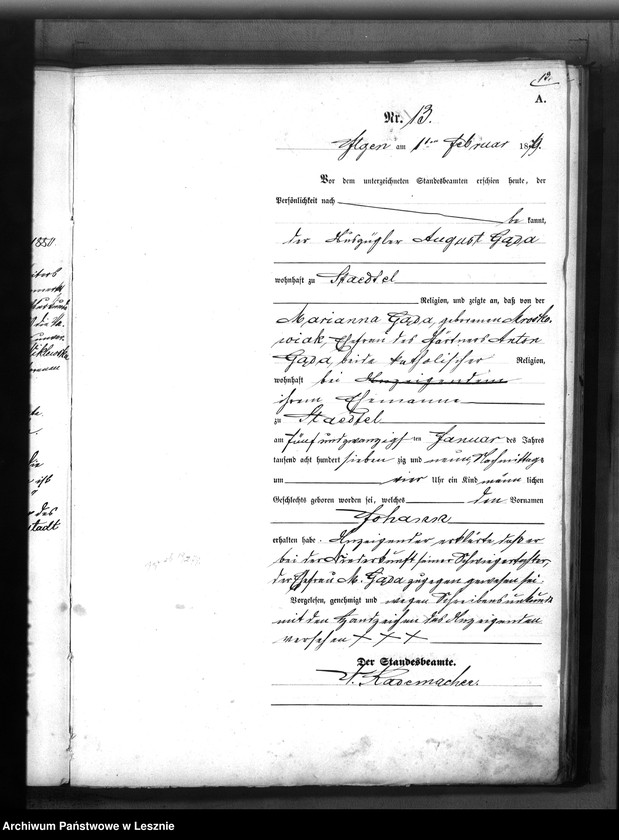 12.
A.
Nr. 13.
Ilgen am 1ten Februar 1879.
Vor dem unterzeichneten Standesbeamten erschien heute, der
Persönlichkeit nach
be kannt,
der Auszügler August Gada
wohnhaft zu Staedtel
Religion, und zeigte an, daß von der
Marianna Gada, geborenen Mrotko-
wiak, Ehefrau des Gärtners Anton
Gada, beide katholischer Religion,
wohnhaft bei Anzeigendem
ihrem Ehemanne
zu Staedtel
am fünfundzwanzigsten Januar des Jahres
tausend acht hundert sieben zig und neun, Nachmittags
um vier Uhr ein Kind männ lichen
Geschlechts geboren worden sei, welches den Vornamen
Johann
erhalten habe. Anzeigender erklärte daß er
bei der Niederkunft seiner Schwiegertochter,
der Ehefrau M. Gada zugegen gewesen sei.
Vorgelesen, genehmigt und wegen Schreibensunkunde
mit den Handzeichen des Anzeigenden
versehen + + +
Der Standesbeamte.
Rademacher.
1880
des
stadt
Archiwum Państwowe w Lesznie